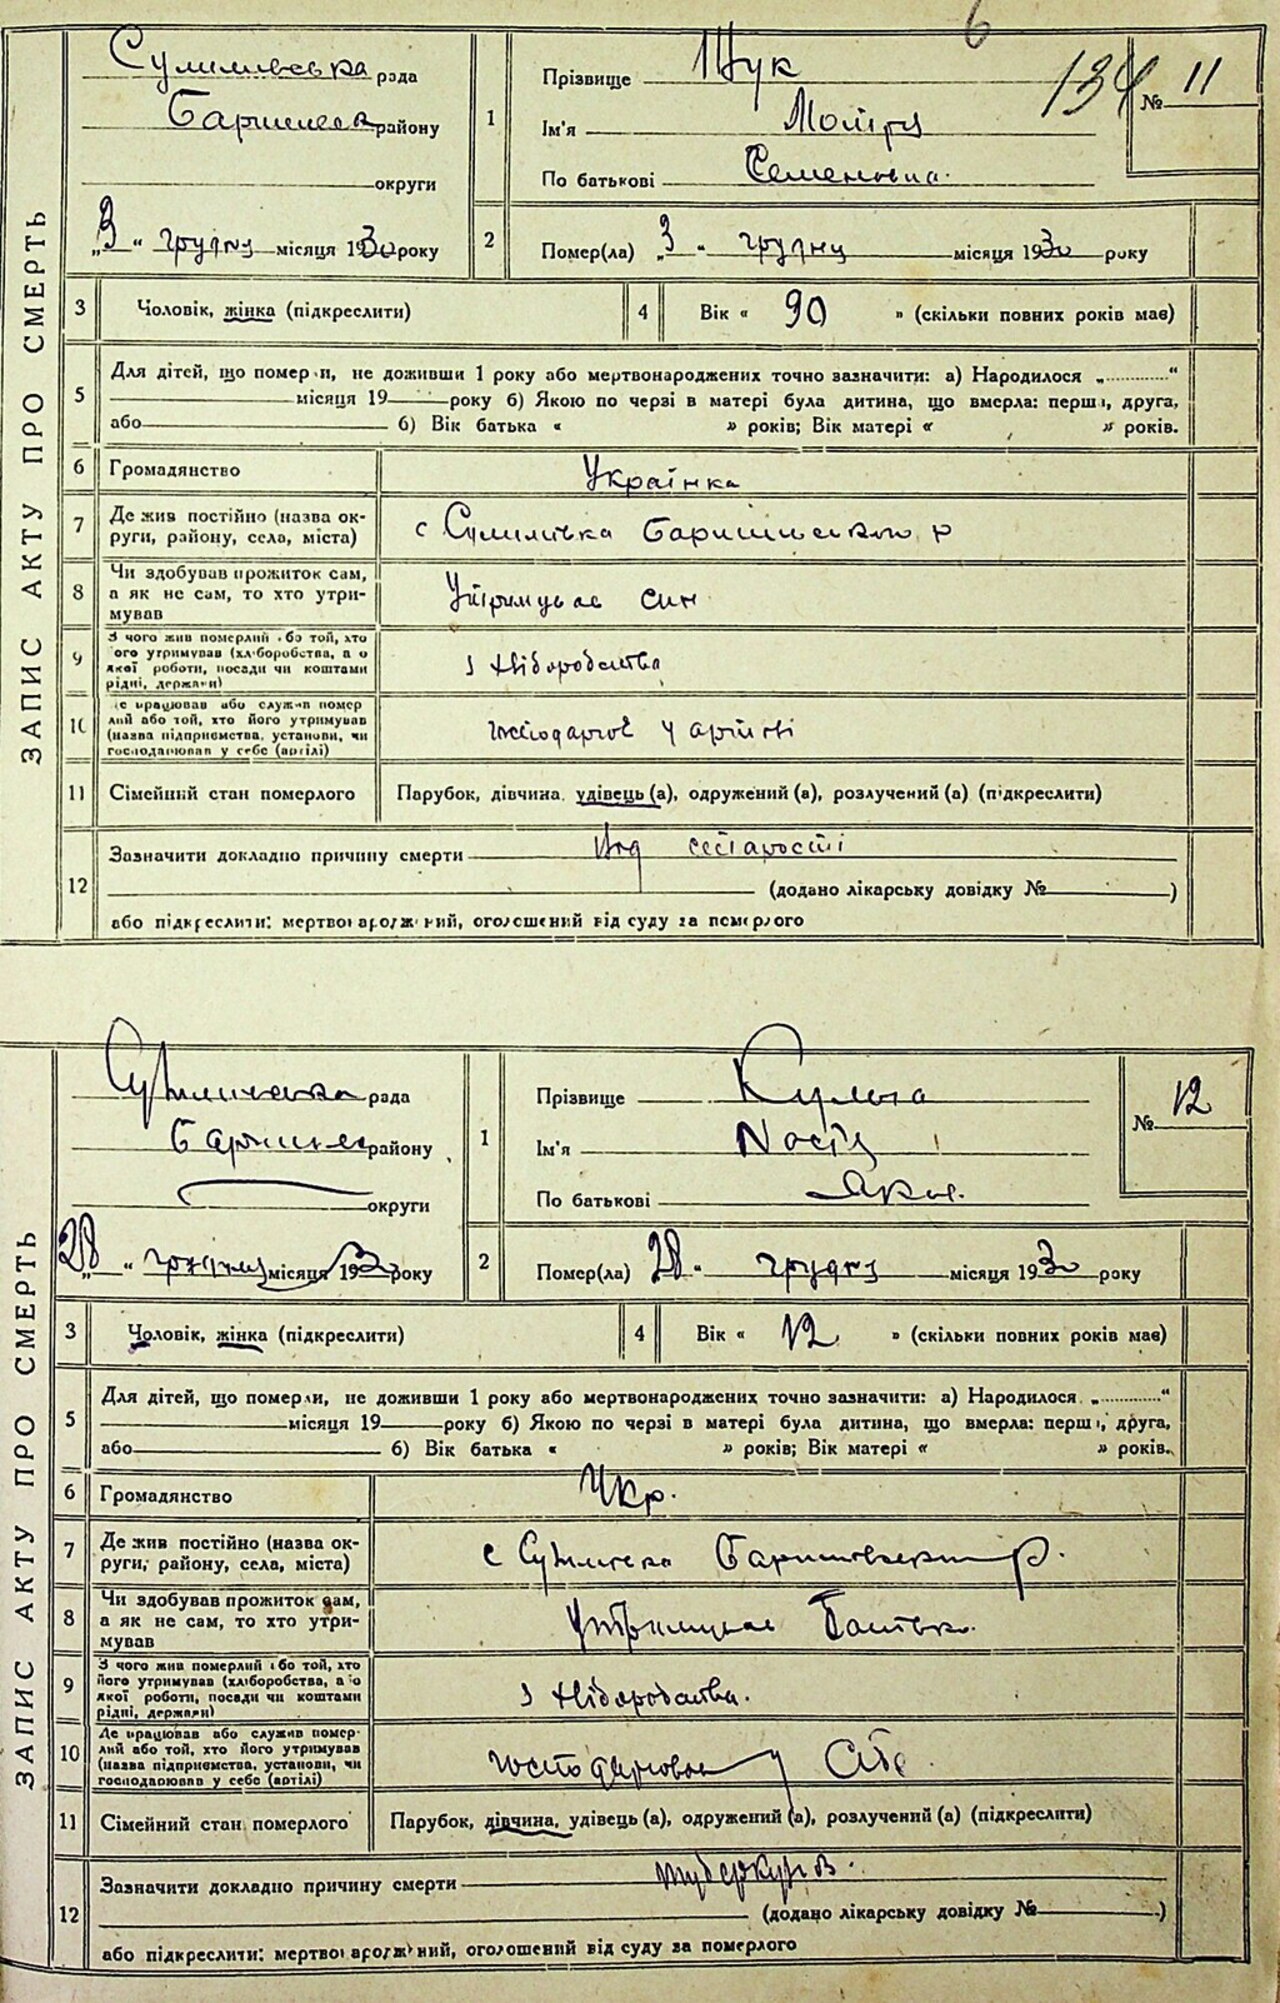 6
Сулимівська рада
Баришівск району
округи
„3“ грудня місяця 1930 року
1
Прізвище Щук
Ім'я Мотря
По батькові Семеновна.
134
№ 11
2
Помер(ла) „3“ грудня місяця 1930 року
ЗАПИС АКТУ ПРО СМЕРТЬ
3 Чоловік, жінка (підкреслити)
4 Вік « 90 » (скільки повних років має)
5 Для дітей, що померли, не доживши 1 року або мертвонароджених точно зазначити: а) Народилося „ “
місяця 19 року б) Якою по черзі в матері була дитина, що вмерла: перша, друга,
або б) Вік батька « » років; Вік матері « » років.
6 Громадянство Українка
7 Де жив постійно (назва ок-
руги, району, села, міста)
с Сулимівка Баришивського р
8 Чи здобував прожиток сам,
а як не сам, то хто утри-
мував
Утримував син
9 З чого жив померлий або той, хто
його утримував (хліборобства, а о
якої роботи, посади чи коштами
рідні, держави)
з хліборобства
10 Де працював або служив помер
лий або той, хто його утримував
(назва підприємства, установи, чи
господарював у себе (артілі)
у артілі
11 Сімейний стан померлого Парубок, дівчина, удівець (а), одружений (а), розлучений (а) (підкреслити)
12 Зазначити докладно причину смерти Від старості
(додано лікарську довідку № )
або підкреслити: мертвонароджений, оголошений від суду за померлого
рада
району
округи
28 “ грудня місяця 1930 року
1
Прізвище
Ім'я
По батькові Яков.
№ 12
2
Помер(ла) 28 “ грудня місяця 1930 року
ЗАПИС АКТУ ПРО СМЕРТЬ
3 Чоловік, жінка (підкреслити)
4 Вік « 12 » (скільки повних років має)
5 Для дітей, що померли, не доживши 1 року або мертвонароджених точно зазначити: а) Народилося „ “
місяця 19 року б) Якою по черзі в матері була дитина, що вмерла: перша, друга,
або б) Вік батька « » років; Вік матері « » років.
6 Громадянство Укр.
7 Де жив постійно (назва ок-
руги, району, села, міста)
с р.
8 Чи здобував прожиток сам,
а як не сам, то хто утри-
мував
Утримував Батько.
9 З чого жив померлий або той, хто
його утримував (хліборобства, а о
якої роботи, посади чи коштами
рідні, держави)
з хліборобства.
10 Де працював або служив помер-
лий або той, хто його утримував
(назва підприємства, установи, чи
господарював у себе (артілі)
господарював у себе
11 Сімейний стан померлого Парубок, дівчина, удівець (а), одружений (а), розлучений (а) (підкреслити)
12 Зазначити докладно причину смерти туберкульоз.
(додано лікарську довідку № )
або підкреслити: мертвонароджений, оголошений від суду за померлого